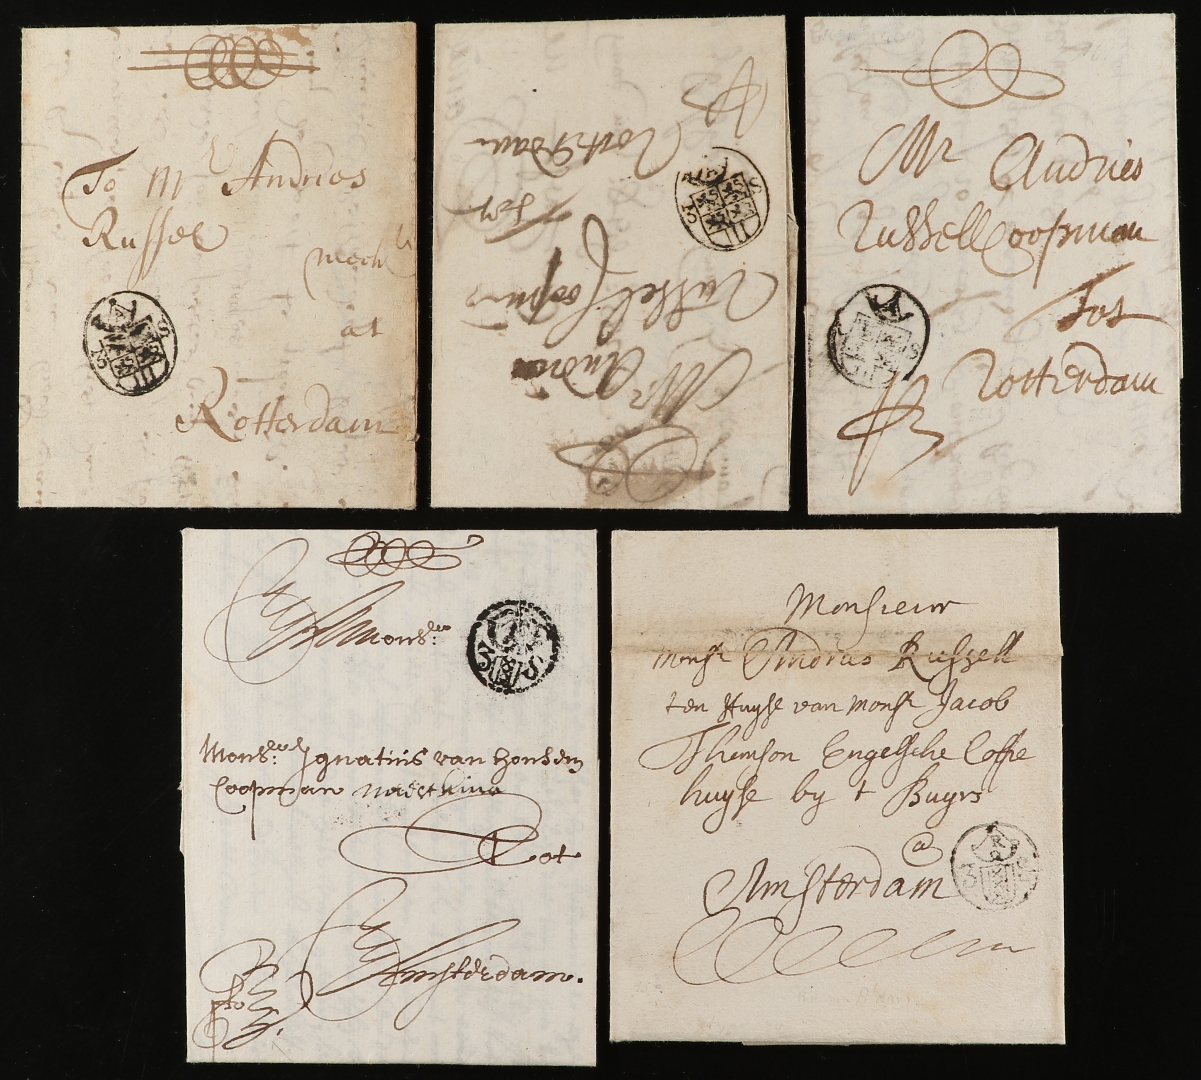 To Mr Andries
Russel
mechl
at
Rotterdam
A
S
Mr Andries
Russel Coopman
Tot
Rotterdam
A
3
S
Mr Andries
Russell Coopman
Tot
Rotterdam
A
S
Monsr.
Monsr. Ignatius van
Coopman
Tot
Amsterdam.
3
S
Monsieur
Monsr Andries Russell
ten Huyse van Monsr Jacob
Thomson Engelsche Coffe
huyse by t Buyrs
@
Amsterdam
3
S